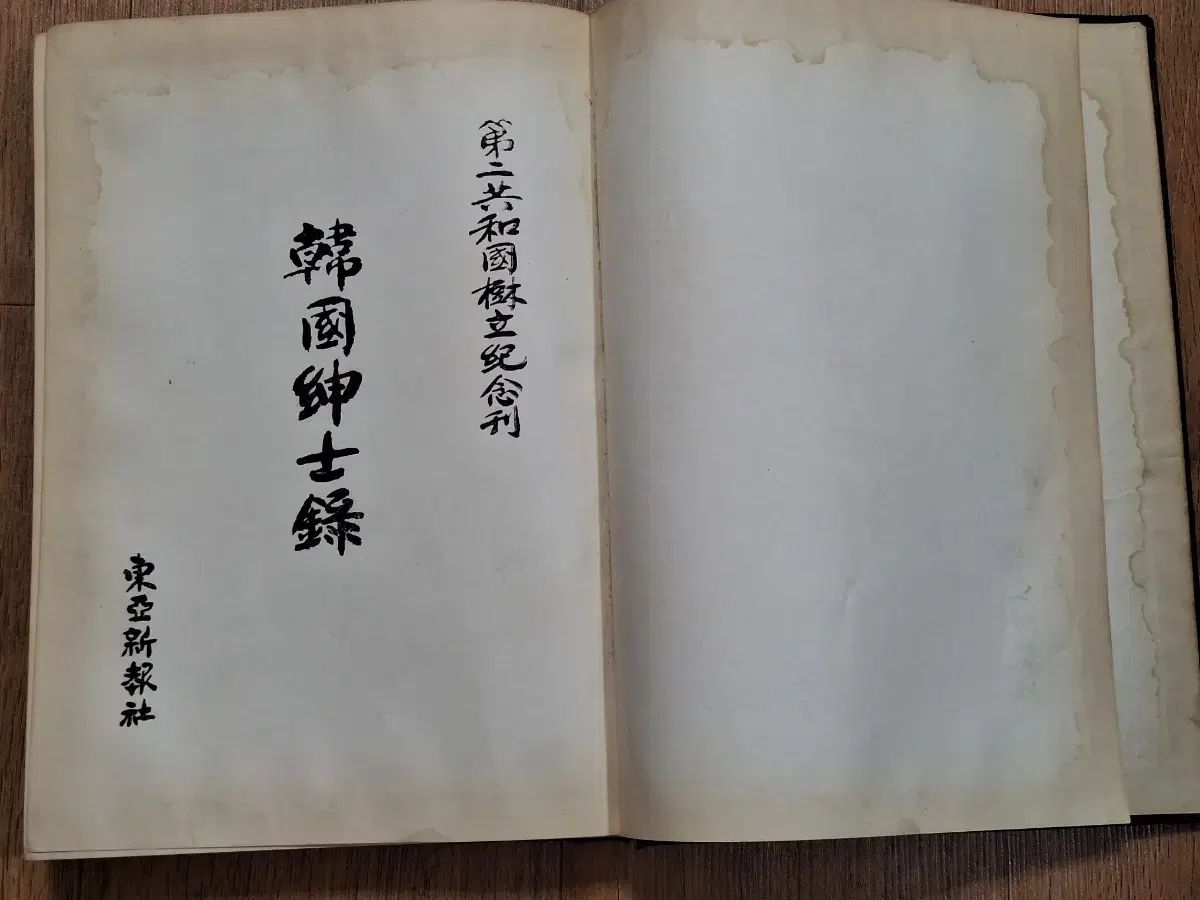 第二共和國樹立紀念刊
韓國紳士錄
東亞新報社